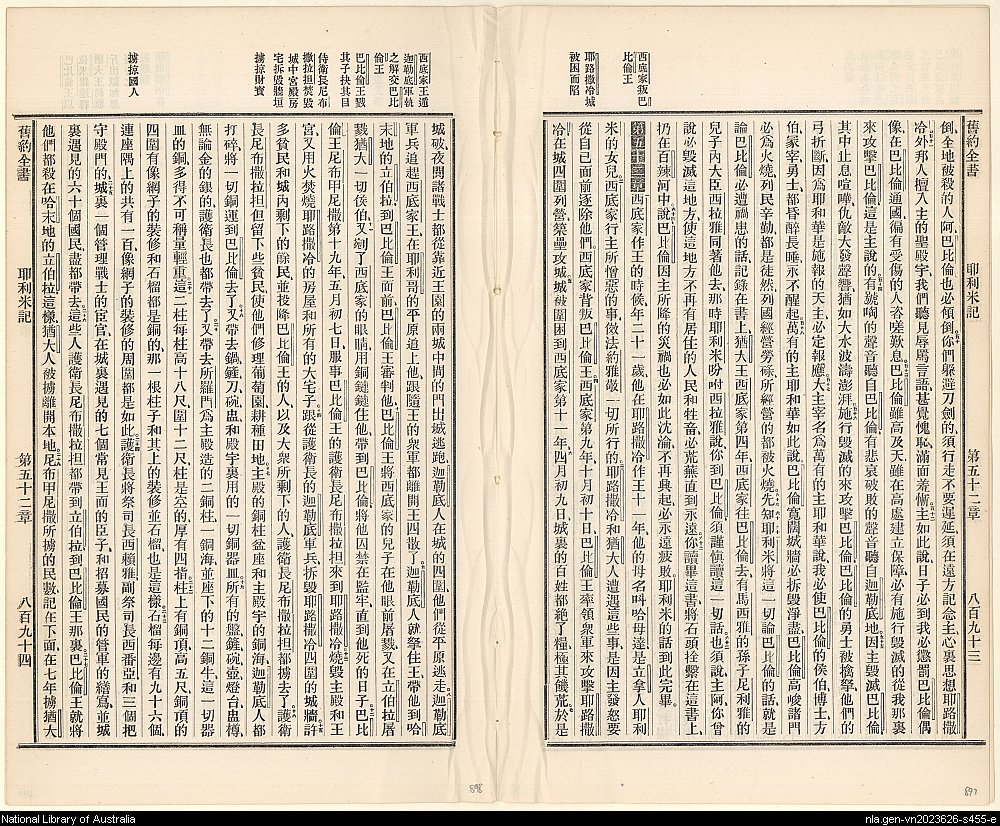 舊約全書 耶利米記 第五十二章 八百九十三
西底家叛巴
比倫王
耶路撒冷城
被困而陷
倒、全地被殺的人、阿、巴比倫也必傾倒你們躲避刀劍的須行走不要遲延、須在遠方記念主心裏思想耶路撒
冷外邦人壇入主的聖殿宇、我們聽見辱罵言語甚覺愧恥、滿面羞慚主如此說、日子必到我必懲罰巴比倫偶
像、在巴比倫通國、徧有受傷的人咨嗟歎息巴比倫雖高及天、雖在高處建立保障、必有施行毀滅的從我那裏
來攻擊巴比倫、這是主說的有號啕的聲音聽自巴比倫、有悲哀破敗的聲音聽自迦勒底地因主毀滅巴比倫
其中止息喧嘩仇敵大發聲響猶如大水波濤澎湃施行毀滅的來攻擊巴比倫、巴比倫的勇士被擒拏、他們的
弓折斷、因爲耶和華是施報的天主必定報應大主宰名爲萬有的主耶和華說、我必使巴比倫的侯伯博士方
伯冢宰勇士、都昏醉長睡永不醒起萬有的主耶和華如此說、巴比倫寬闊城牆必拆毀淨盡巴比倫高峻諸門
必爲火燒、列民辛勤都是徒然、列國經營勞碌、所經營的都被火燒先知耶利米將這一切論巴比倫的話就是
論巴比倫必遭禍患的話記錄在書上猶大王西底家第四年、西底家往巴比倫去、有馬西雅的孫子尼利雅的
兒子內大臣西拉雅同著他去、那時耶利米吩咐西拉雅說、你到巴比倫、須謹愼讀這一切話也須說、主阿你曾
說必毀滅這地方使這地方不再有居住的人民和牲畜必荒蕪直到永遠你讀畢這書、將石頭拴繫在這書上、
扔在百辣河中說巴比倫因主所降的災禍也必如此沈淪不再興起必永遠破敗耶利米的話到此完畢、
第五十二章 西底家作王的時候、年二十一歲、他在耶路撒冷作王十一年、他的母名叫哈母達是立拿人耶利
米的女兒西底家行主所憎惡的事、傚法約雅敬一切所行的耶路撒冷和猶大人遭遇這些事、是因主發怒要
從自己面前逐除他們、西底家背叛巴比倫王西底家第九年十月初十日、巴比倫王率領衆軍來攻擊耶路撒
冷、在城四圍列營築壘攻城城被圍困到西底家第十一年四月初九日城裏的百姓都絕了糧、極其饑荒於是
西底家王遁
迦勒底軍執
之解交巴比
倫王
巴比倫王戮
其子抉其目
侍衛長尼布
撒拉担焚毀
城中宮殿房
宅拆毀牆垣
擄掠財寳
擄掠國人
城破、夜間諸戰士都從靠近王園的兩城中間的門出城逃跑迦勒底人在城的四圍他們從平原逃走迦勒底
軍兵追趕西底家王在耶利哥的平原追上他跟隨王的衆軍都離開王四散了迦勒底人就拏住王帶他到哈
末地的立伯拉到巴比倫王面前、巴比倫王審判他巴比倫王將西底家的兒子在他眼前屠戮又在立伯拉屠
戮猶大一切侯伯又剜了西底家的眼睛用銅鏈鏈住他、帶到巴比倫、將他囚禁在監牢直到他死的日子巴比
倫王尼布甲尼撒第十九年、五月初七日服事巴比倫王的護衛長尼布撒拉担、來到耶路撒冷燒毀主殿和王
宮又用火焚燒耶路撒冷的房屋和所有的大宅子跟從護衛長的迦勒底軍兵拆毀耶路撒冷四圍的城牆許
多貧民和城內剩下的餘民、並投降巴比倫王的人、以及大衆所剩下的人、護衛長尼布撒拉担都擄去了護衛
長尼布撒拉担但留下些貧民使他們修理葡萄園耕種田地主殿的銅柱盆座和主殿宇的銅海、迦勒底人都
打碎將一切銅運到巴比倫去了又帶去鍋鏟刀碗盅和殿宇裏用的一切銅器皿所有的盤鏟碗壺燈台盅樽、
無論金的銀的、護衛長也都帶去了又帶去所羅門爲主殿造的二銅柱一銅海並座下的十二銅牛這一切器
皿的銅多得不可稱量輕重這二柱每柱高十八尺圍十二尺柱是空的、厚有四指柱上有銅頂高五尺、銅頂的
四圍有像網子的裝修和石榴都是銅的那一根柱子和其上的裝修並石榴也是這樣石榴每邊有九十六個、
連座隅上的共有一百像網子的裝修的周圍都是如此護衛長將祭司長西賴雅副祭司長西番亞和三個把
守殿門的城裏一個管理戰士的臣官在城裏遇見的七個常見王面的臣子和招募國民的管軍的繕寫並城
裏遇見的六十個國民盡都帶去這些人護衛長尼布撒拉担都帶到立伯拉到巴比倫王那裏巴比倫王就將
他們都殺在哈末地的立伯拉這樣猶大人被擄離開本地尼布甲尼撒所擄的民數記在下面、在七年擄猶大
舊約全書 耶利米記 第五十二章 八百九十四
898
897
National Library of Australia
nla.gen-vn2023626-s455-e